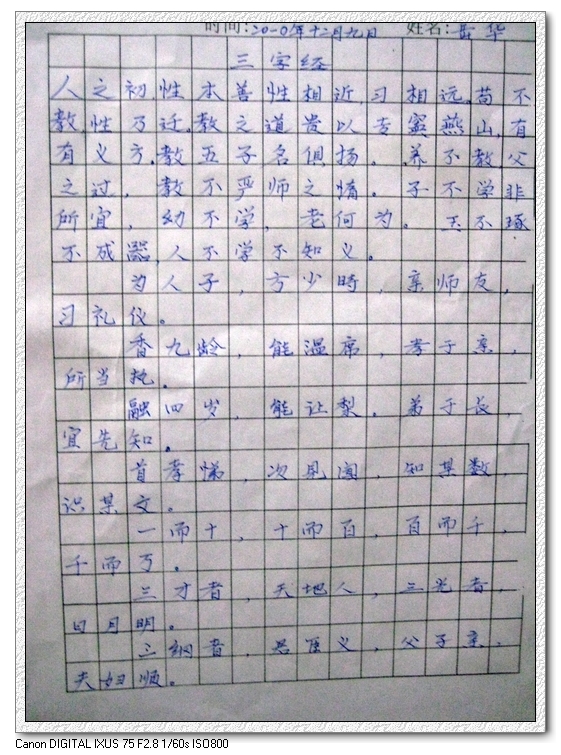 时间:二〇一〇年十二月九日 姓名:岳华
三字经
人之初性本善性相近,习相远,苟不
教,性乃迁,教之道贵以专窦燕山,有
有义方,教五子名俱扬。养不教父
之过,教不严师之惰。子不学非
所宜,幼不学,老何为。玉不琢
不成器,人不学不知义。
为人子,方少時,亲师友,
习礼仪。
香九龄,能温席,孝于亲,
所当执。
融四岁,能让梨。弟于长,
宜先知。
首孝悌,次见闻,知某数,
识某文。
一而十,十而百,百而千,
千而万。
三才者,天地人,三光者,
日月明。
三纲者,君臣义,父子亲、
夫妇顺。
Canon DIGITAL IXUS 75 F2.8 1/60s ISO800